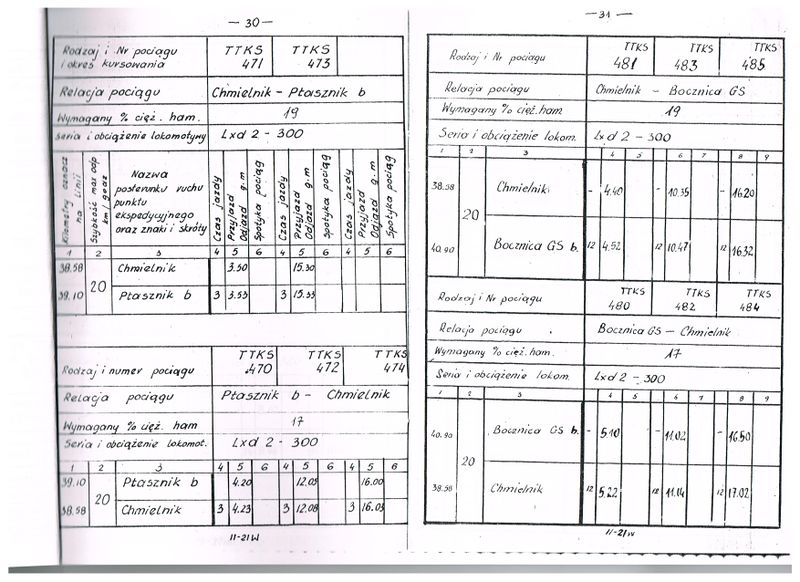 — 30 —
Rodzaj i Nr pociągu TTKS TTKS
i okres kursowania 471 473
Relacja pociągu Chmielnik – Ptasznik b
Wymagany % cięż. ham. 19
Seria i obciążenie lokomotywy Lxd 2 - 300
Kilometry oznacz na linii
Szybkość max odp km/godz
Nazwa
posterunku ruchu
punktu
ekspedycyjnego
oraz znaki i skróty
Czas jazdy Przyjazd Odjazd g. m Spotyka pociąg Czas jazdy Przyjazd Odjazd g. m Spotyka pociąg Czas jazdy Przyjazd Odjazd g. m Spotyka pociąg
1 2 3 4 5 6 4 5 6 4 5 6
38.58 Chmielnik 3.50 15.30
20
39.10 Ptasznik b 3 3.53 3 15.33
TTKS TTKS TTKS
Rodzaj i numer pociągu 470 472 474
Relacja pociągu Ptasznik b – Chmielnik
Wymagany % cięż. ham 17
Seria i obciążenie lokomot. Lxd 2 - 300
1 2 3 4 5 6 4 5 6 4 5 6
39.10 Ptasznik b 4.20 12.05 16.00
20
38.58 Chmielnik 3 4.23 3 12.08 3 16.03
11-21W
— 31 —
TTKS TTKS TTKS
Rodzaj i Nr pociągu 481 483 485
Relacja pociągu Chmielnik – Bocznica GS
Wymagany % cięż. ham 19
Seria i obciążenie lokom. Lxd 2 - 300
1 2 3 4 5 6 7 8 9
38.58 Chmielnik – 4.40 – 10.35 – 16.20
20
40.90 Bocznica GS b. 12 4.52 12 10.47 12 16.32
TTKS TTKS TTKS
Rodzaj i Nr pociągu 480 482 484
Relacja pociągu Bocznica GS – Chmielnik
Wymagany % cięż. ham. 17
Seria i obciążenie lokom. Lxd 2 - 300
1 2 3 4 5 6 7 8 9
40.90 Bocznica GS b. – 5.10 – 11.02 – 16.50
20
38.58 Chmielnik 12 5.22 12 11.14 12 17.02
11-21W